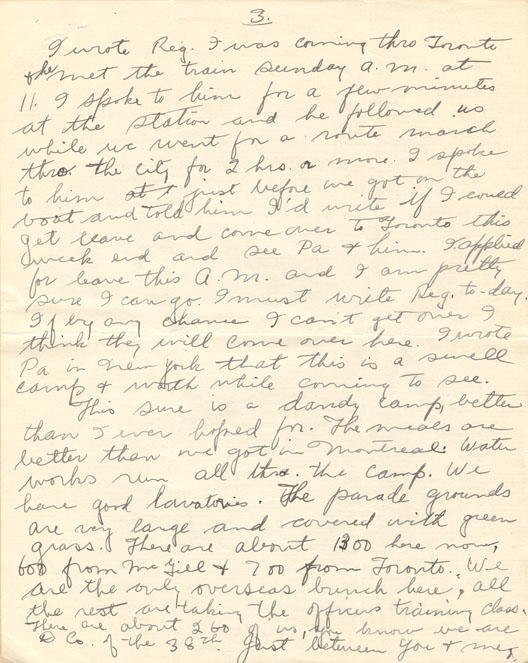 3.
I wrote Reg. I was coming thro Toronto
& he met the train sunday A.M. at
11. I spoke to him for a few minutes
at the station and he followed us
while we went for a route march
thro. the city for 2 hrs. or more. I spoke
to him just before we got on the
boat and told him I'd write if I could
get leave and come over to Toronto this
week end and see Pa & him. I applied
for leave this A.M. and I am pretty
sure I can go. I must write Reg. to-day.
If by any chance I can't get over I
think they will come over here. I wrote
Pa in New York that this is a swell
camp & worth while coming to see.
This sure is a dandy camp, better
than I ever hoped for. The meals are
better than we got in Montreal. Water
works run all thro. the camp. We
have good lavatories. The parade grounds
are very large and covered with green
grass. There are about 1300 here now,
600 from McGill & 700 from Toronto. We
are the only overseas bunch here, all
the rest are taking the officers training class.
There are about 260 of us, you know we are
D Co. of the 38th. Just between you & me,